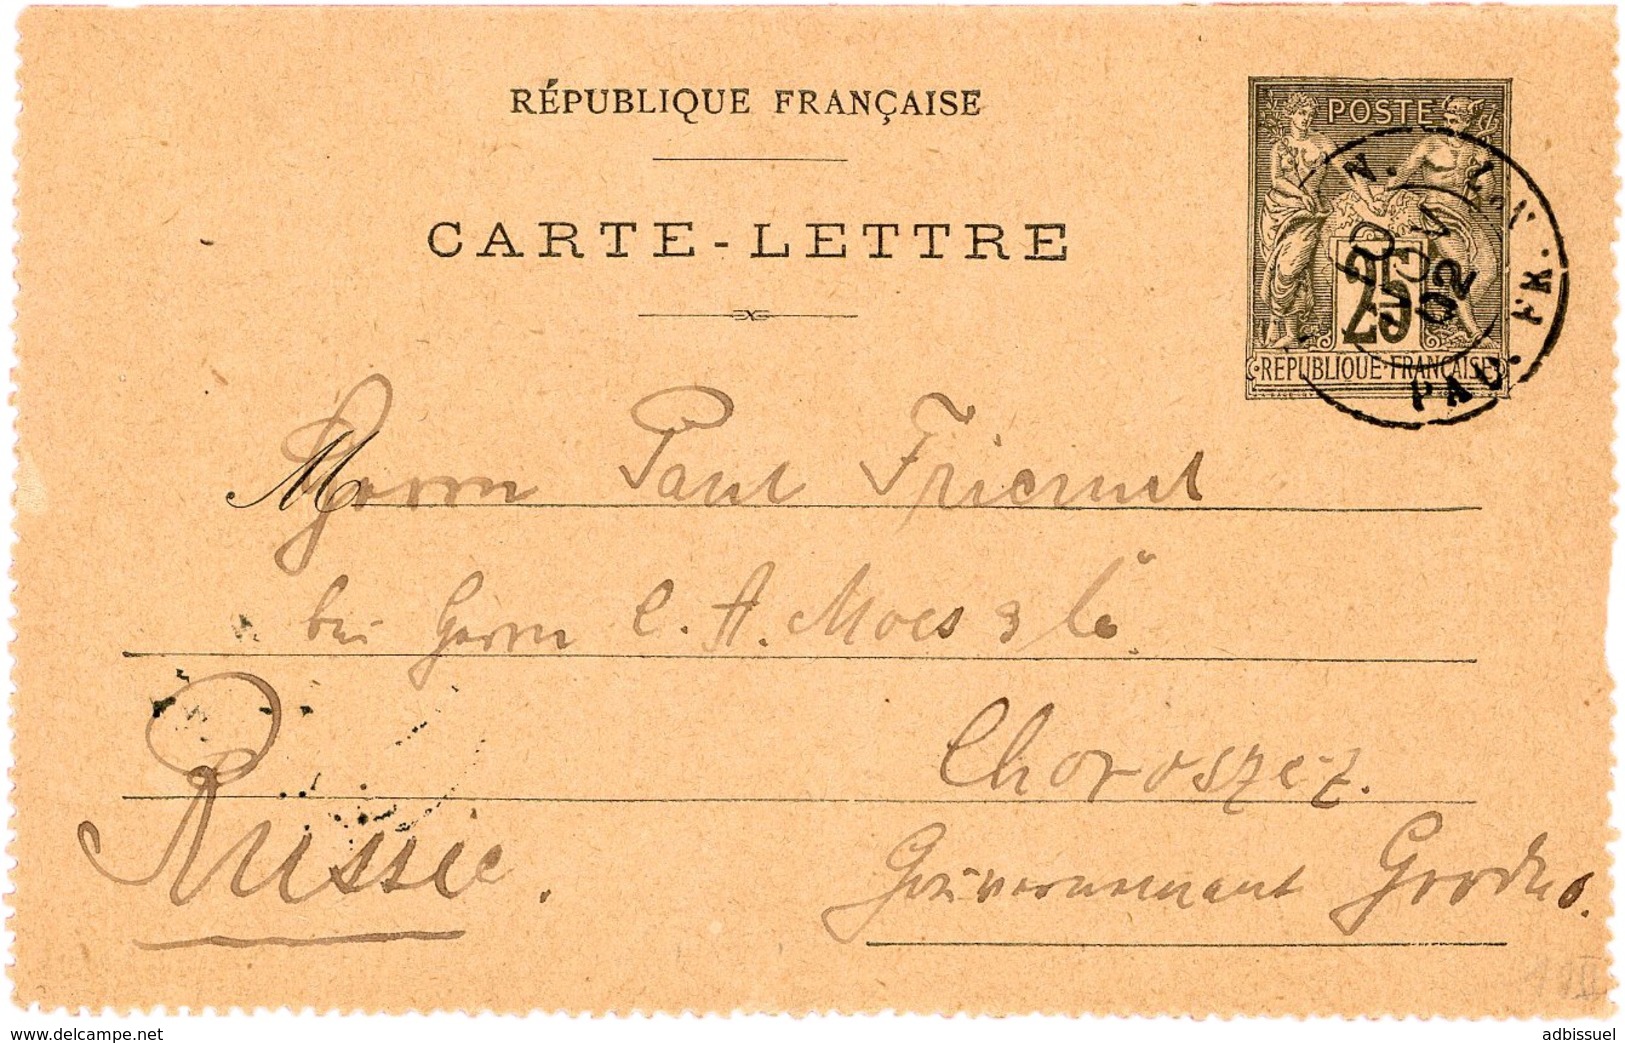 RÉPUBLIQUE FRANÇAISE
CARTE-LETTRE
POSTE
25
RÉPUBLIQUE FRANÇAISE
02
PAQ. FR.
M
Herrn Paul
bei Herrn C. A. Moes & Co
Choroszcz.
Gouvernement Grodno.
Russie.
www.delcampe.net
adbissuel